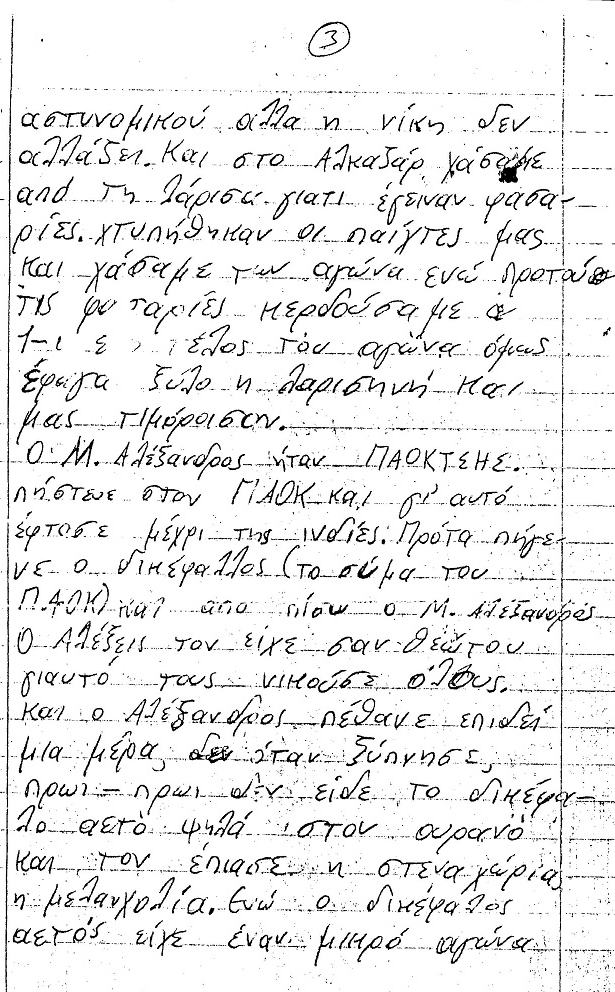 3
αστυνομικού αλλα η νίκη δεν
αλλάζει. Και στο Αλκαζάρ χάσαμε
από τη λάρισα γιατι έγειναν φασα-
ρίες. χτυπήθηκαν οι παίχτες μας
και χάσαμε των αγώνα ενώ προτού
της φασαρίες κερδούσαμε
1-1 τέλος του αγώνα όμως
έφαγα ξύλο η λαρισηνή και
μας τιμόρισαν.
Ο Μ. Αλέξανδρος ήταν ΠΑΟΚΤΣΗΣ.
πήστευε στον ΠΑΟΚ και γι' αυτό
έφτασε μέχρι της ινδίες. Πρότα πήγε-
νε ο δικέφαλλος (το σύμα του
Π.ΑΟΚ) και απο πίσω ο Μ. Αλέξανδρος
Ο Αλέξεις τον είχε σαν θεώ του
γιαυτό τους νικούσε όλους.
Και ο Αλέξανδρος πέθανε επιδεί
μια μέρα, όταν ξύπνησε,
πρωι - πρωι δεν είδε το δικέφα-
λο αετό ψηλά στον ουρανό
και τον έπιασε η στεναχώρια,
η μελανχολία. Ενώ ο δικέφαλος
αετός είχε έναν μικρό αγώνα